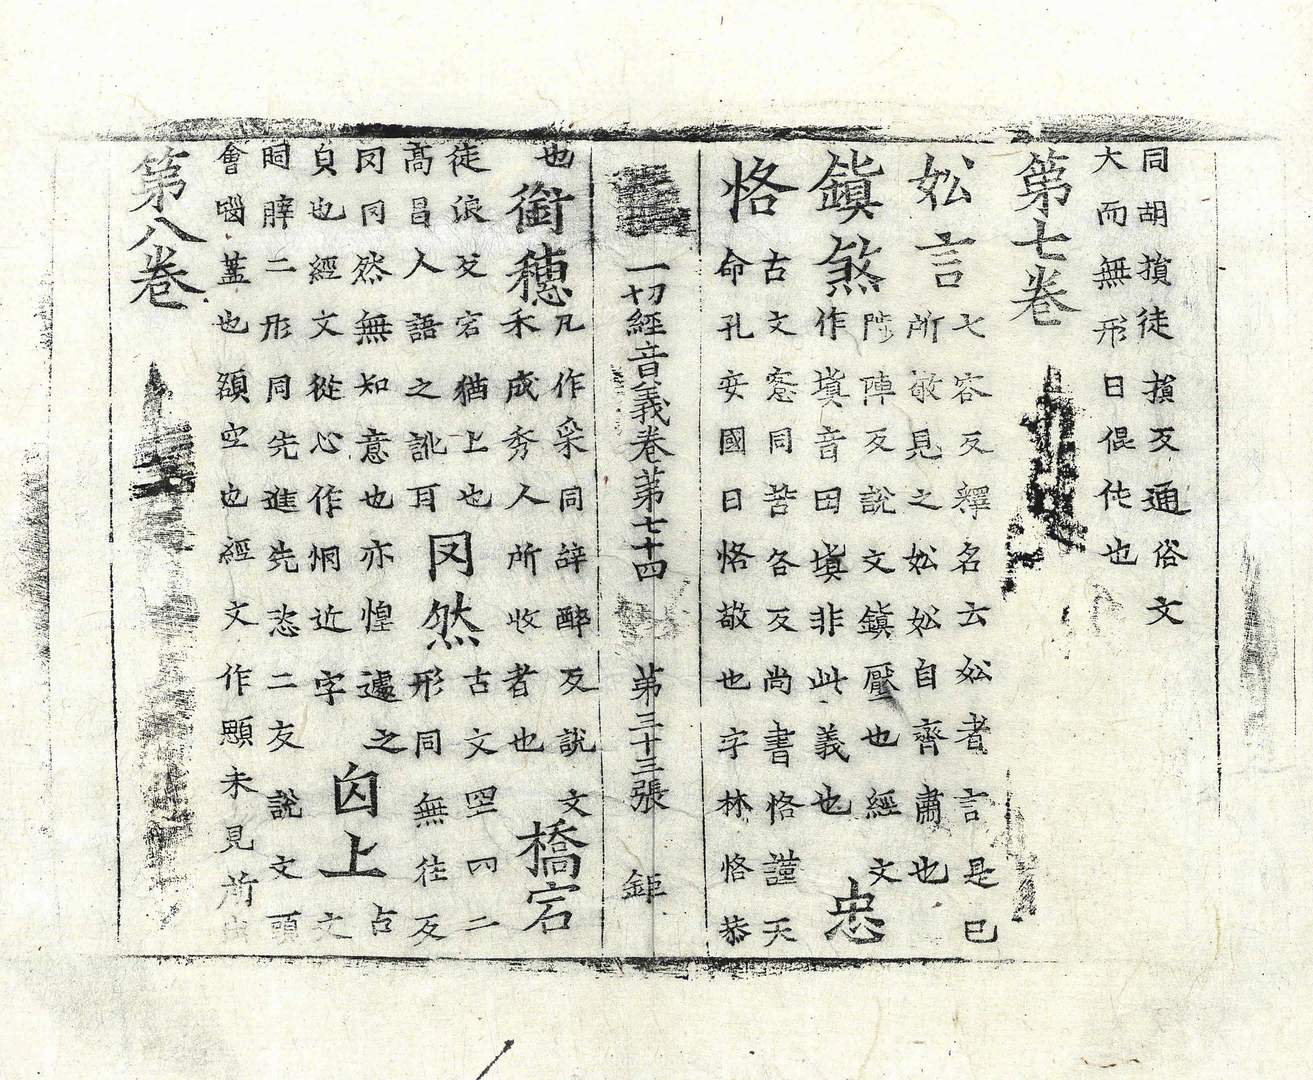 同胡損徒損反通俗文
大而無形曰倱伅也
第七卷
妐言
七容反釋名云妐者言是已
所敬見之妐妐自齊肅也
鎭煞
陟陣反說文鎭壓也經文
作塡音田塡非此義也
忠恪
古文愙同苦各反尚書恪謹天
命孔安國曰恪敬也字林恪恭
一切經音義卷第七十四 第三十三張 鉅
也
銜穗
凡作采同辝醉反說文
禾成秀人所收者也
橋宕
徒浪反宕猶上也
高昌人語之訛耳
罔然
古文 二
形同無往反
罔罔然無知意也亦惶遽之
皃也經文從心作惘近字
囟上
古
文
脺二形同先進先恣二反說文頭
會匘蓋也額空也經文作顖未見所由
第八卷